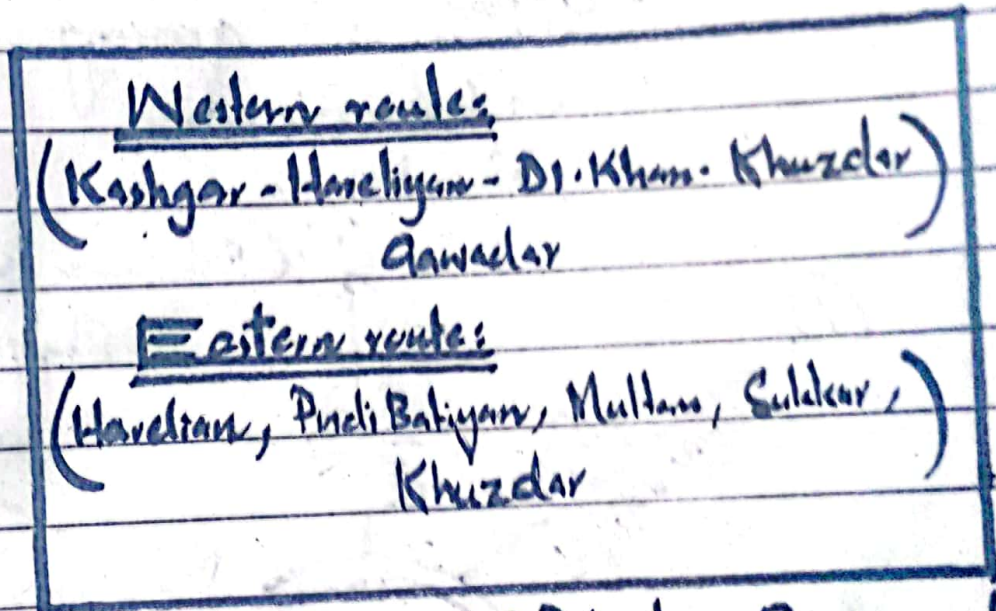 Western route:
(Kashgar - Haveliyan - DI. Khan. Khuzdar)
Gawadar
Eastern route:
(Havelian, Pindi Batiyan, Multan, Sukkur,)
Khuzdar